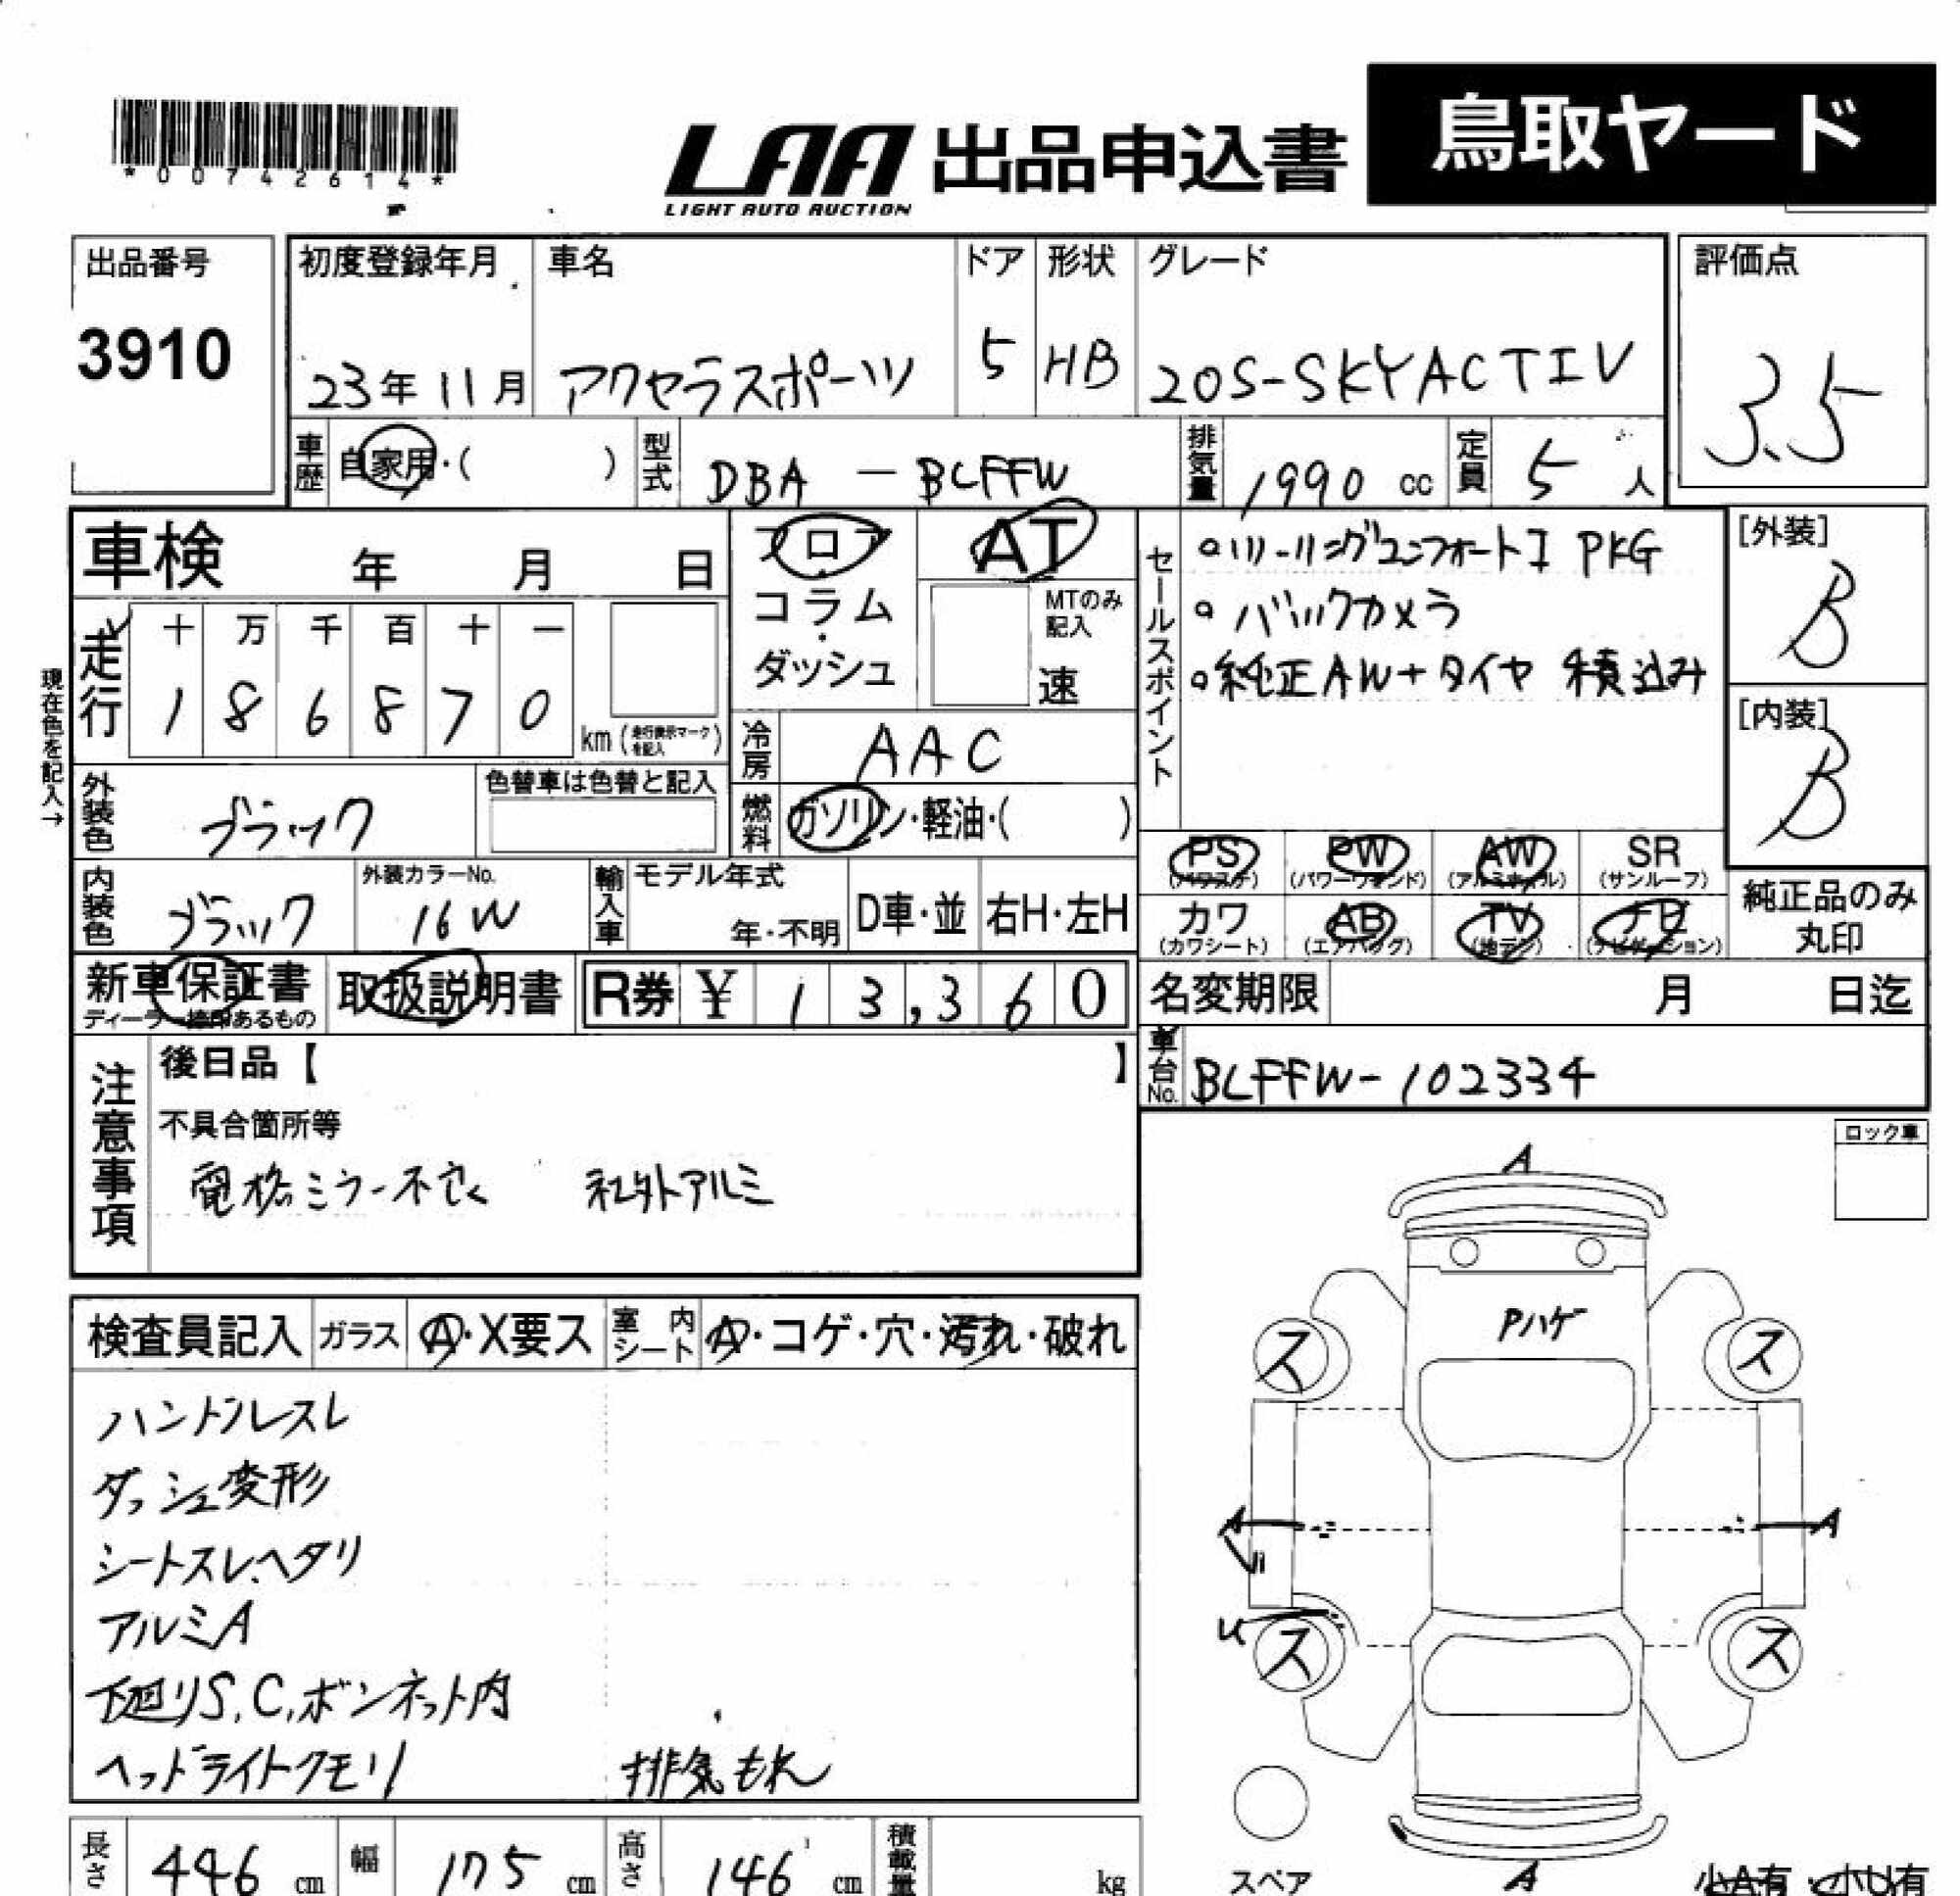 *00742614*
LAA 出品申込書 鳥取ヤード
LIGHT AUTO AUCTION
出品番号 初度登録年月 車名 ドア 形状 グレード 評価点
3910 23年11月 アクセラスポーツ 5 HB 20S-SKYACTIV 3.5
車歴 自家用・( ) 型式 DBA-BLFFW 排気量 1990 cc 定員 5人
車検 年 月 日
フロア・コラム・ダッシュ
AT
MTのみ記入
速
セールスポイント
・ツーリングコンフォートI PKG
・バックカメラ
・純正AW+タイヤ 積込み
[外装]
B
[内装]
B
現在色を記入→
走行 十 万 千 百 十 一
1 8 6 8 7 0 km (走行表示マークを記入)
冷房 AAC
外装色 ブラック 色替車は色替と記入
燃料 ガソリン・軽油・( )
PS (パワステ) PW (パワーウインド) AW (アルミホイル) SR (サンルーフ)
カワ (カワシート) AB (エアバッグ) TV (地デジ) ナビ (ナビゲーション)
純正品のみ
丸印
内装色 ブラック 外装カラーNo. 16W 輸入車 モデル年式 年・不明 D車・並 右H・左H
新車保証書 取扱説明書 R券 ¥ 13,360
ディーラー捺印あるもの
名変期限 月 日迄
車台No. BLFFW-102334
注意事項
後日品【 】
不具合箇所等
電格ミラー不良 社外アルミ
ロック車
検査員記入 ガラス A・X要ス 室内シート A・コゲ・穴・汚れ・破れ
ハンドルスレ
ダッシュ変形
シートスレ、ヘタリ
アルミA
下廻りS,C,ボンネット内
ヘッドライトクモリ 排気もれ
A
Pハゲ
ス ス
A A
U
ス ス
A
スペア
小A有・小U有
長さ 446 cm 幅 175 cm 高さ 146 cm 積載量 kg